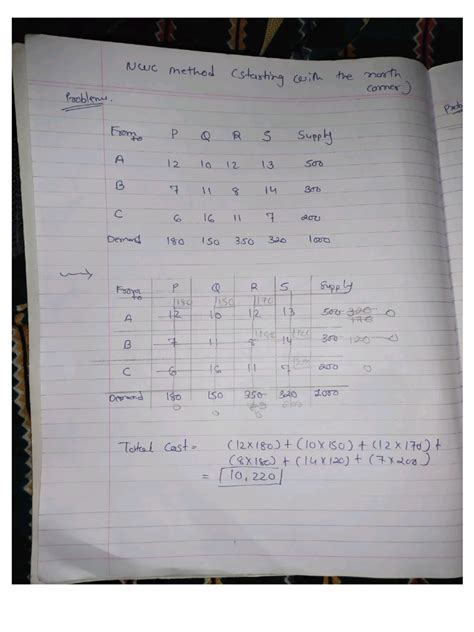 NWC method (starting with the north
corner)
Problem.
From to P Q R S Supply
A 12 10 12 13 500
B 7 11 8 14 300
C 6 16 11 7 200
Demand 180 150 350 320 1000
From to P Q R S Supply
180 150 170
A 12 10 12 13 500 320 0
170
180 120
B 7 11 8 14 300 120 0
200
C 6 16 11 7 200 0
Demand 180 150 350 320 1000
0 0 200
0
Total Cost = (12x180) + (10x150) + (12x170) +
(8x180) + (14x120) + (7x200)
= 10,220